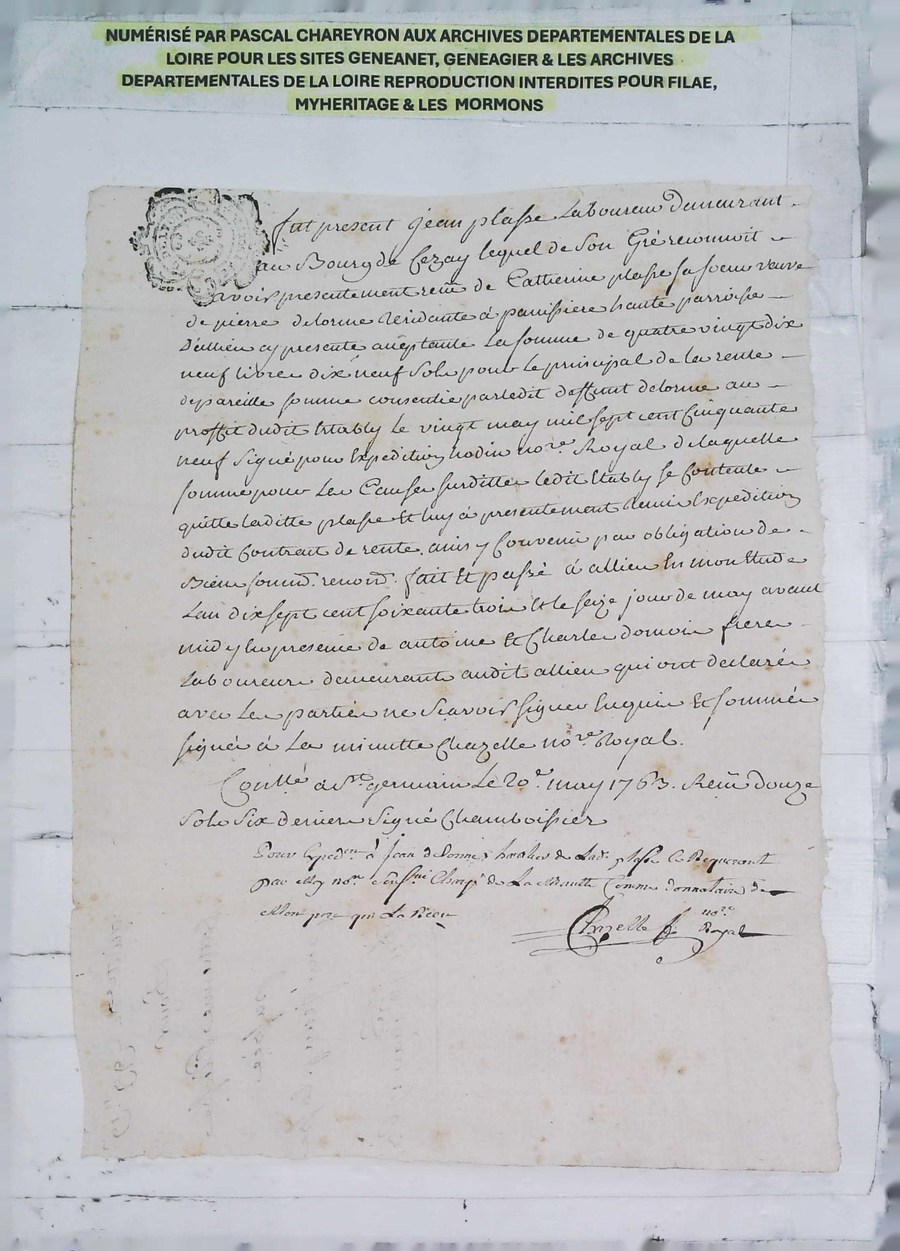 NUMÉRISÉ PAR PASCAL CHAREYRON AUX ARCHIVES DEPARTEMENTALES DE LA
LOIRE POUR LES SITES GENEANET, GENEAGIER & LES ARCHIVES
DEPARTEMENTALES DE LA LOIRE REPRODUCTION INTERDITES POUR FILAE,
MYHERITAGE & LES MORMONS
fut present jean plasse Laboureur demeurant
au Bourg de Cezay lequel de son Gré reconnoit
avoir presentement reçu de Catherine plasse sa soeur veuve
de pierre delorme residante à panissiere haute parroisse
d'allieu cy presente acceptante La somme de quatre vingt dix
neuf livre dix neuf sols pour le principal de la rente
de pareille somme consentie par ledit deffunt delorme au
proffit dudit Etably le vingt may mil sept cent cinquante
neuf signé pour Expedition nodin nore Royal de laquelle
somme pour Les Causes surdittes ledit Etably se contente
quitte laditte plasse Et luy à presentement remis Expedition
dudit Contrat de rente ainsy Convenu par obligation de
Biens soumd. renond. fait Et passé à allieu En mon Etude
Lan dix sept cent soixante trois Et le seize jour de may avant
midy En presence de antoine Et Charle frere
Laboureurs demeurants audit allieu qui ont declaré
avec Les parties ne scavoir signer Enquis Et sommés
signé à La minutte Chazelle nore Royal.
Conllé à St germain Le 20e may 1763. Reçu douze
sols six deniers signé
Pour Expedon à jean delorme de Lad. plasse Le Requerant
par Moy nore Chargé de La Minutte Comme donnataire de
Mon pere qui La Reçu
Chazelle nore
Royal